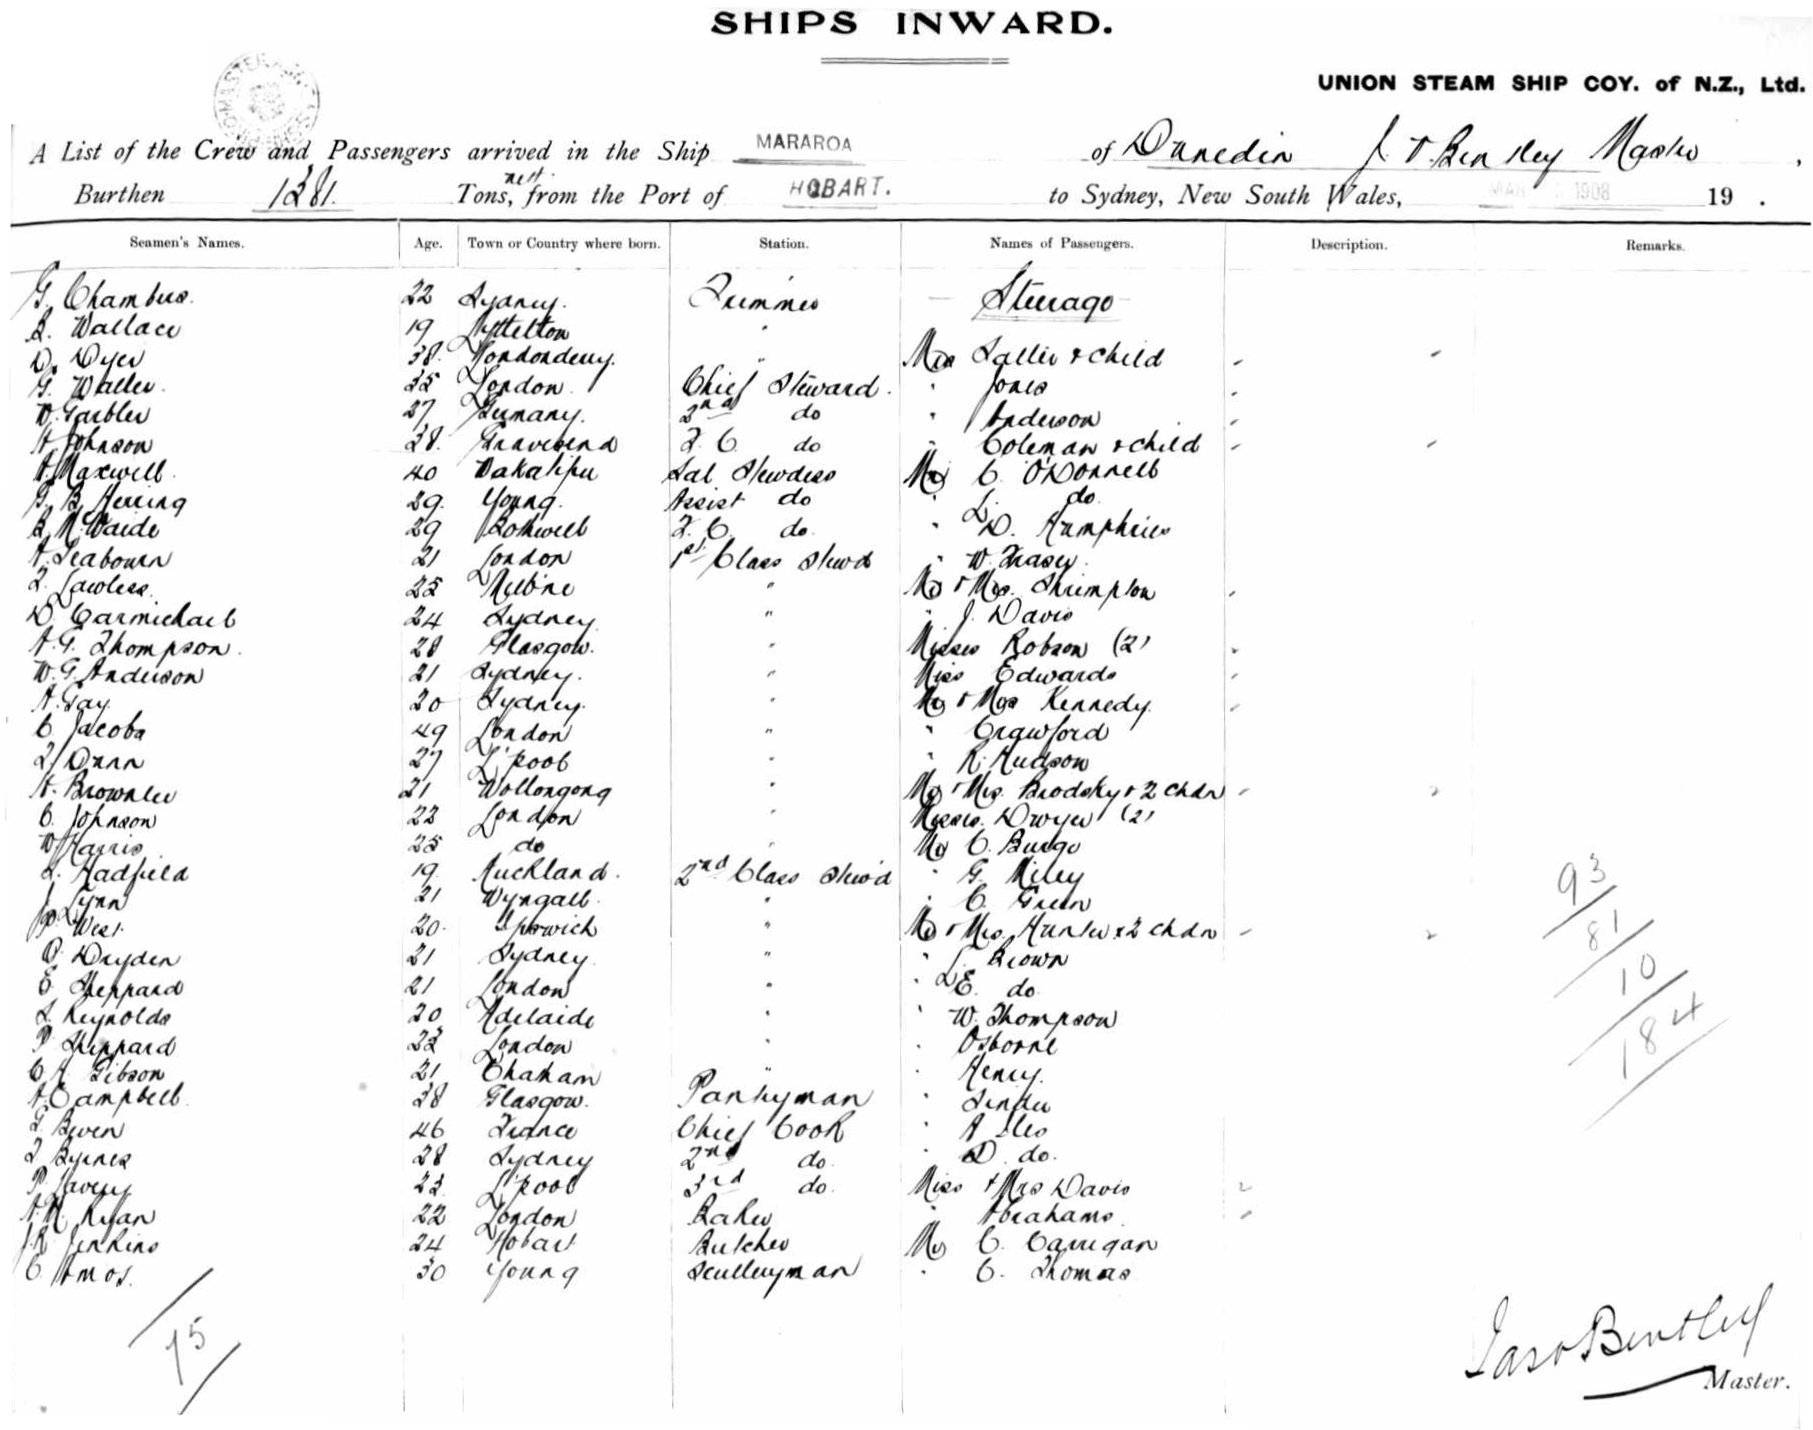 SHIPS INWARD.
UNION STEAM SHIP COY. of N.Z., Ltd.
A List of the Crew and Passengers arrived in the Ship MARAROA of Dunedin J. Bentley Master,
Burthen 1381. Tons, nett. from the Port of HOBART. to Sydney, New South Wales, MAR 1908 19 .
Seamen's Names. Age. Town or Country where born. Station. Names of Passengers. Description. Remarks.
G. Chambers. 22 Sydney. Trimmer Steerage
R. Wallace 19 Lyttelton "
D. Dyer 38. Londonderry. " Mrs Salter & child
G. Waller. 35 London. Chief Steward. " Jones
W. Garbler 27 Germany. 2nd do " Anderson
A Johnson 38. Gravesend F. C. do " Coleman & child
A. Maxwell. 40 Wakatipu Sal Stewdess Mr C. O'Donnell
G. B. Herring 29. Young. Assist do " L. do.
29 Bothwell F. C. do. " D. Humphries
A. Seabourn 21 London 1st Class Stewd " W. Frasey.
F. Lawless. 25 Melb'ne " Mr & Mrs. Shrimpton
D. Carmichael 24 Sydney " " J. Davis
A. G. Thompson. 28 Glasgow. " Misses Robson (2)
W. G. Anderson 21 Sydney. " Miss Edwards
A. Gay. 20 Sydney. " Mr & Mrs Kennedy.
C. Jacobs 49 London " " Crawford
J. Dunn 27 L'pool " " R. Hudson
A. Brownlee 21 Wollongong " Mr & Mrs. Brodsky & 2 chdn
C. Johnson 22 London " Misses. Dwyer (2)
W Harris 25 do " Mr C. Burge
S. Hadfield 19. Auckland. 2nd Class Stew'd " G. Miley
J. Lynn 21 " " C. Green
West. 20. Ipswich " Mr & Mrs. Hunter & 2 chdn
P. Dryden 21 Sydney. " " L. Brown
E. Sheppard 21 London " " E. do.
S. Reynolds 20 Adelaide " " W. Thompson
P. Sheppard 22 London " " Osborne
C. A. Gibson 21 Chatham " " Henry.
A. Campbell. 38 Glasgow. Pantryman "
G. Bwen 46 France Chief Cook "
F Byrnes 28 Sydney 2nd do. " D. do.
P. Lavery 23. L'pool 3rd do. Miss & Mrs Davis
A. M. Ryan 22 London Baker " Abrahams
J. R. Jenkins 24 Hobart Butcher Mr C. Carrigan
C. Amos. 30 Young Sculleryman " C. Thomas
93
81
10
184
75
Jas Bentley
Master.